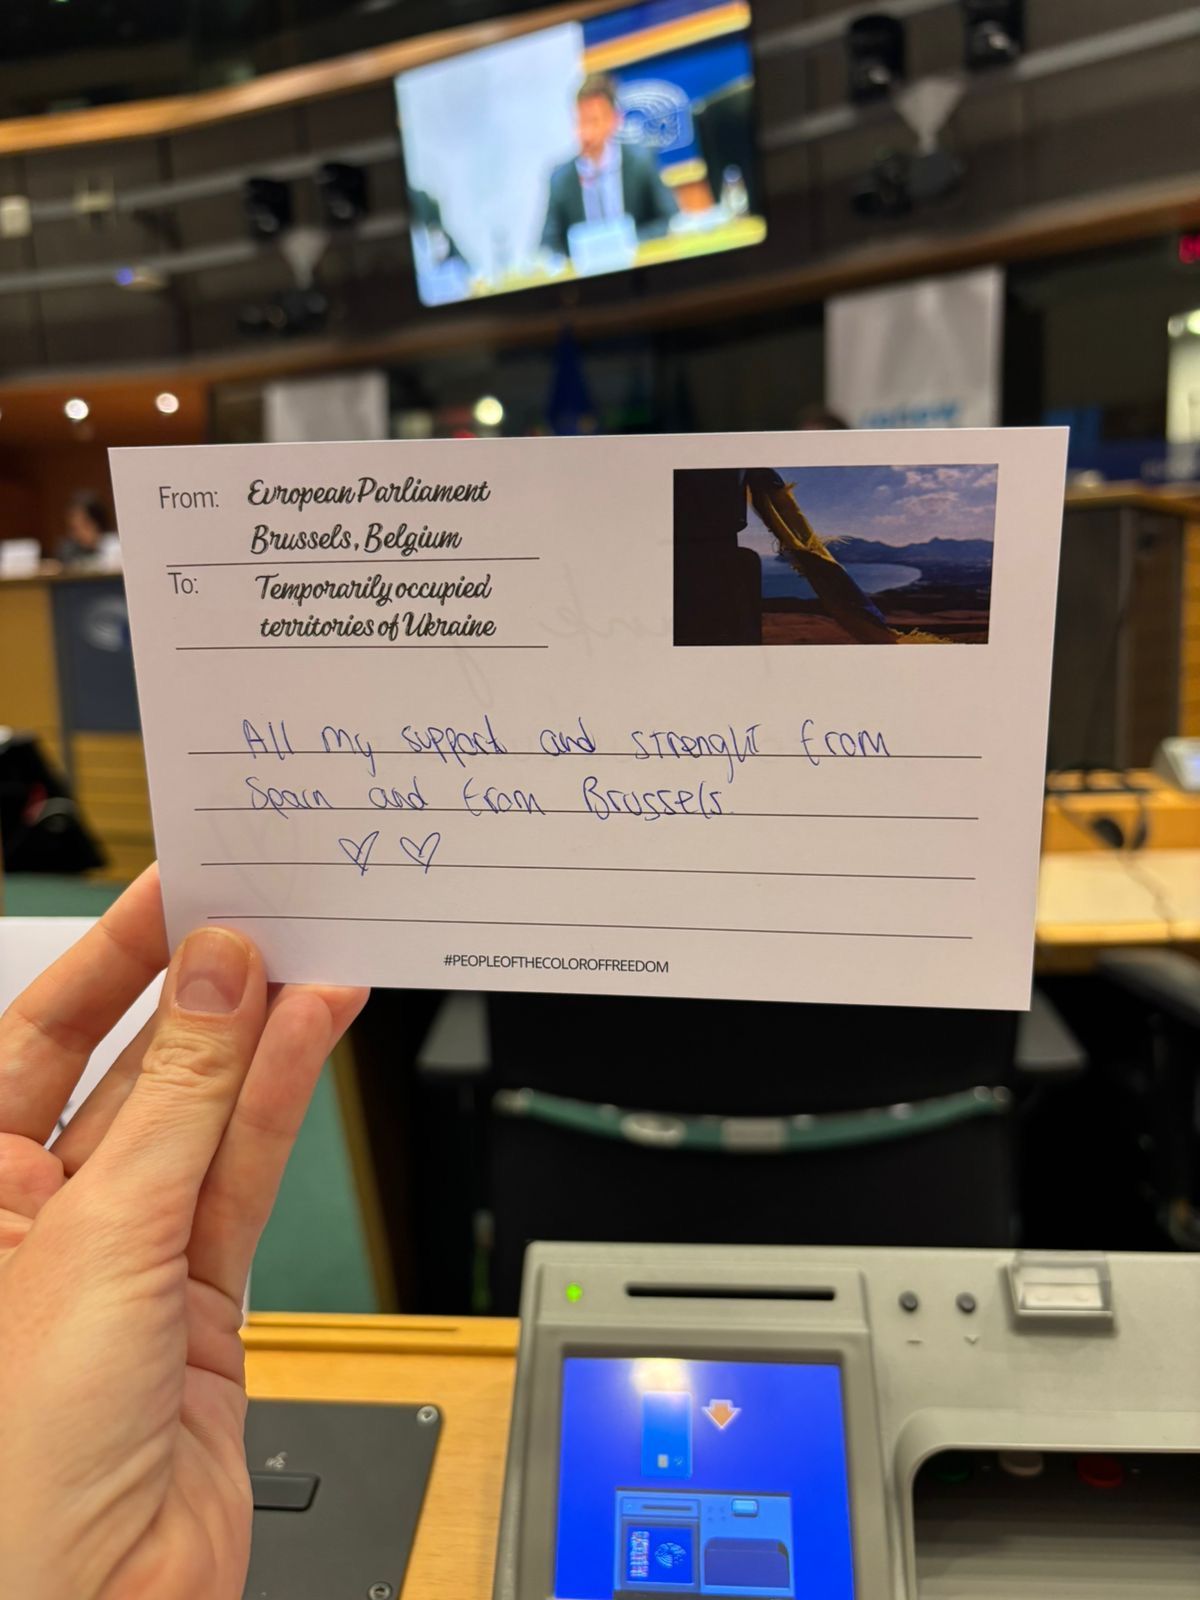 From: European Parliament
Brussels, Belgium
To: Temporarily occupied
territories of Ukraine
All my support and strenght from
Spain and from Brussels.
#PEOPLEOFTHECOLOROFFREEDOM